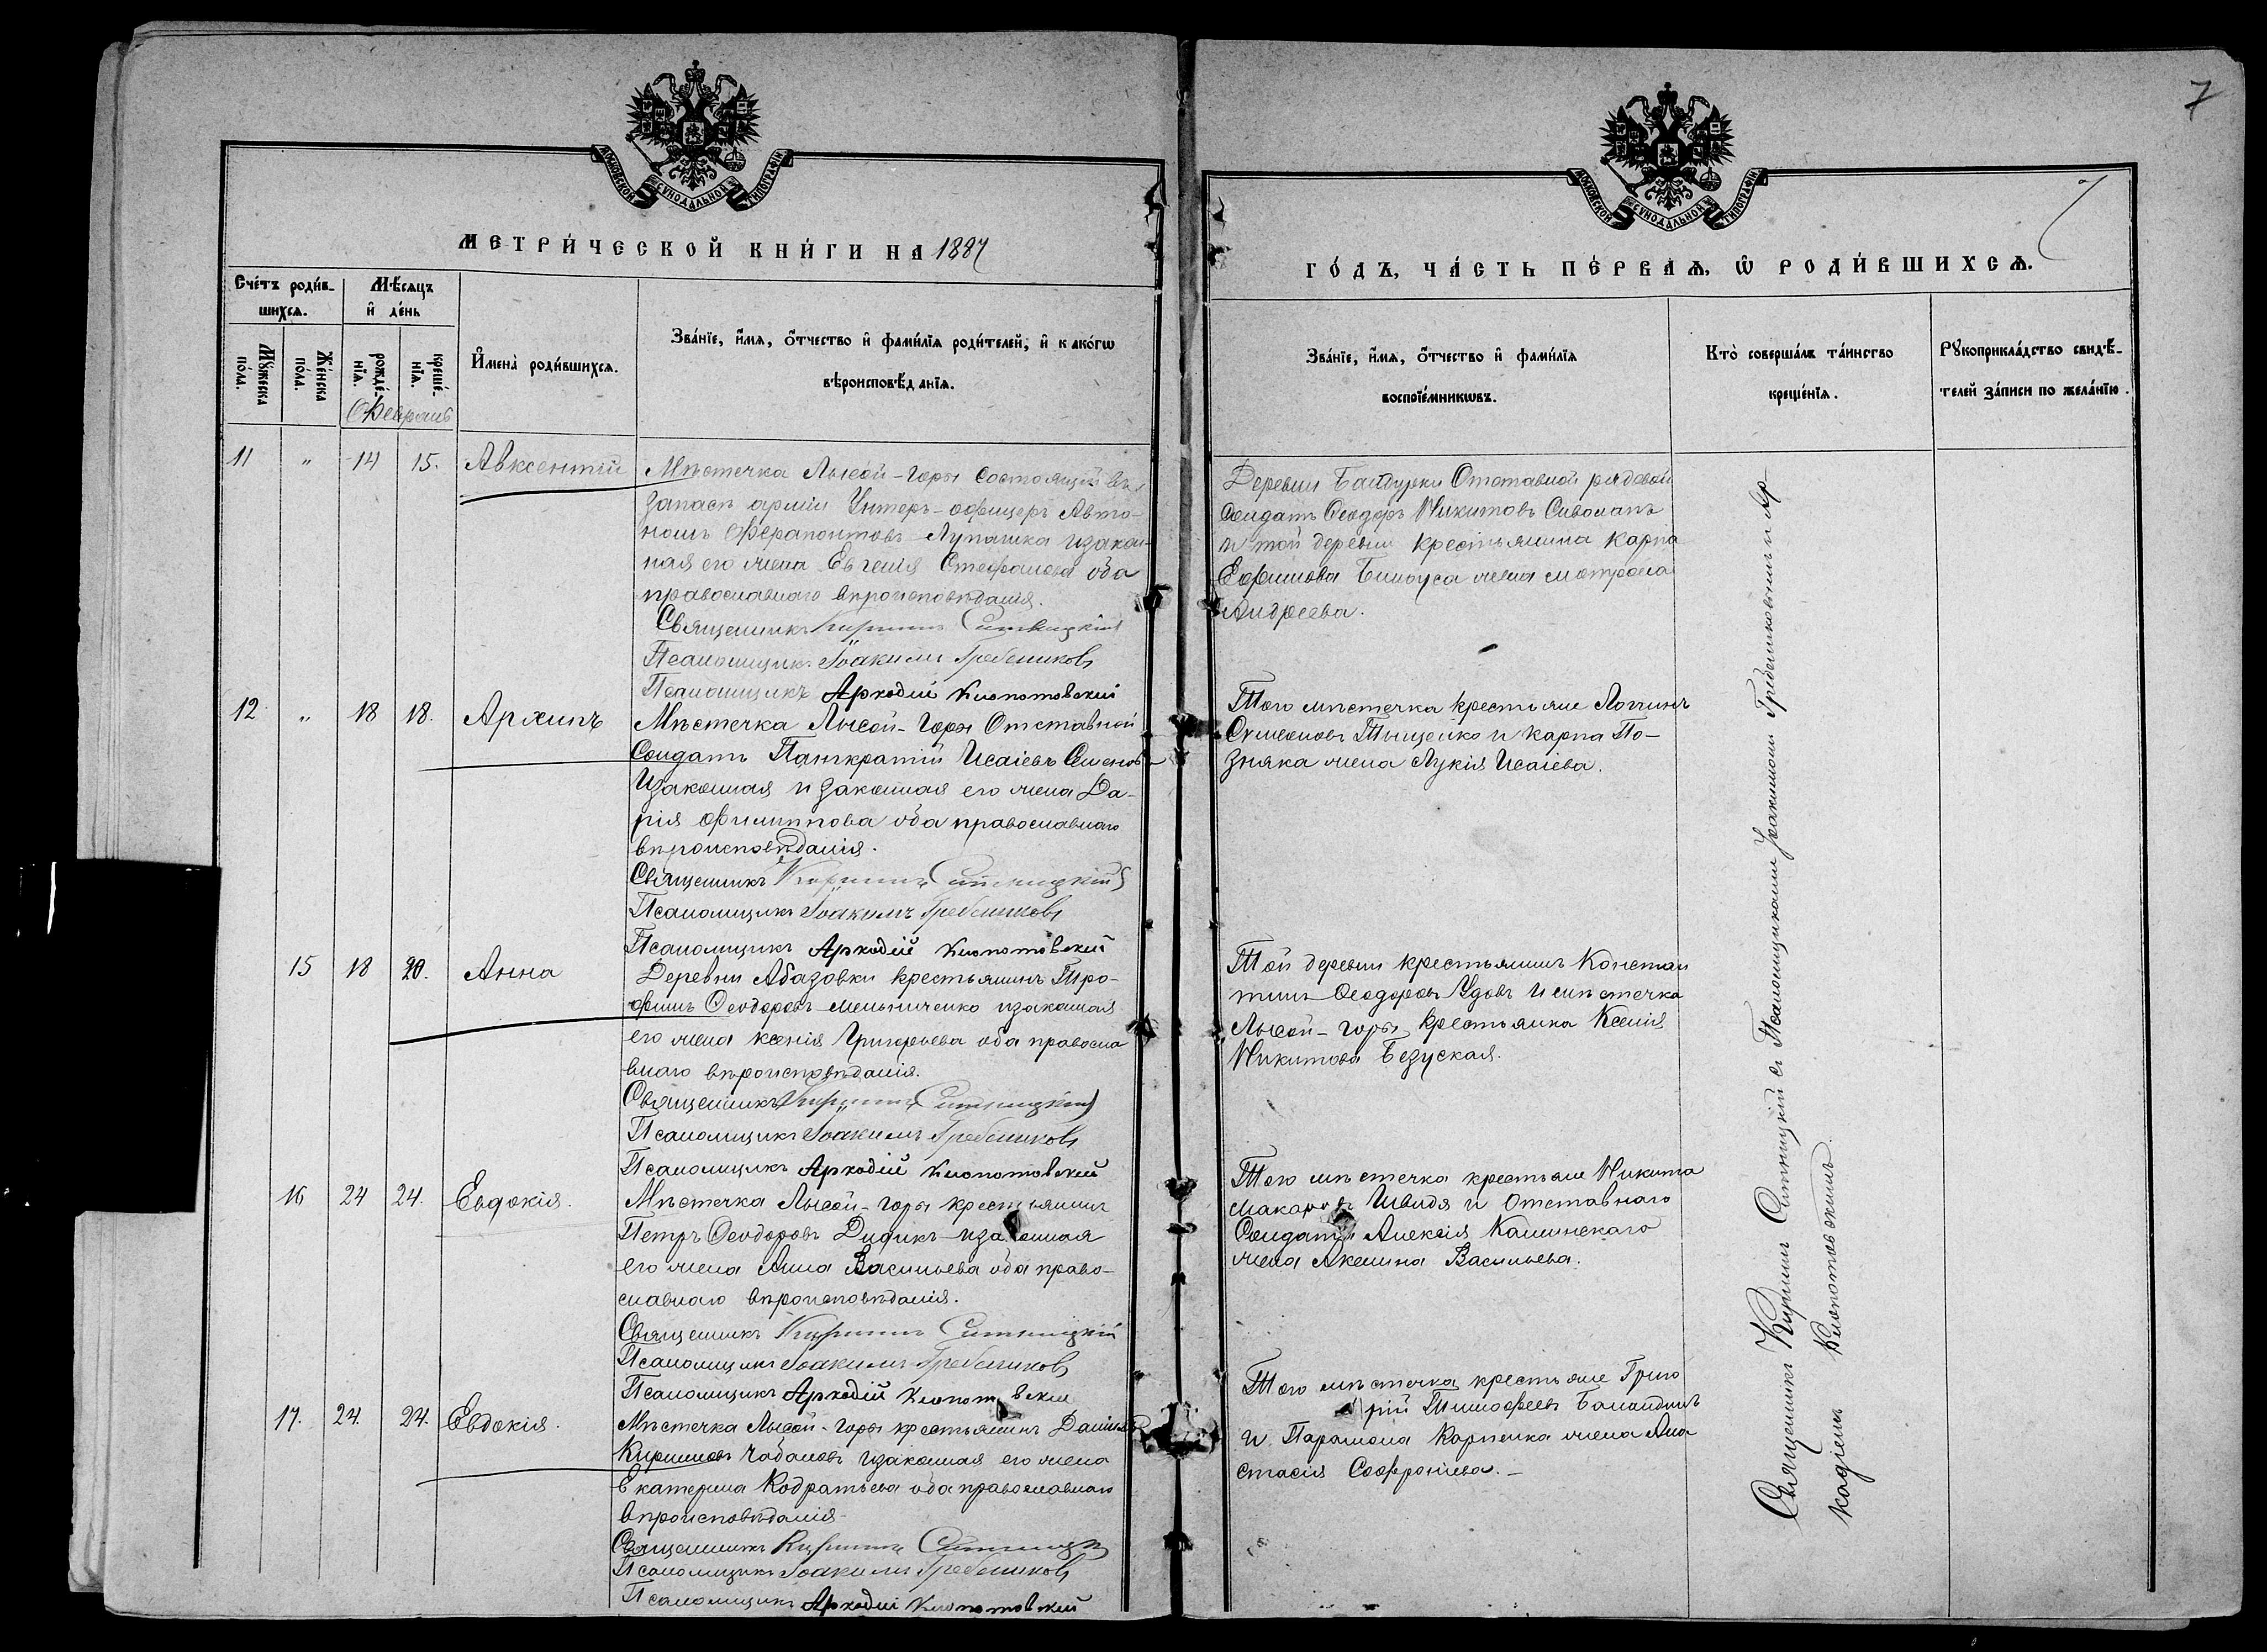 7
МОСКОВСКОЙ СѴНОДАЛЬНОЙ ТИПОГРАФІИ
МЕТРИ́ЧЕСКОЙ КНИ́ГИ НА 1887
Сче́тъ роди́в-
шихсѧ.
Мѣ́сѧцъ
и҆ де́нь
Мꙋ́жеска
по́ла.
Же́нска
по́ла.
рожде́-
нїѧ.
креще́-
нїѧ.
Февраль
И҆мена̀ роди́вшихсѧ.
Зва́нїе, и҆́мѧ, ѻ҆́тчество и҆ фами́лїѧ роди́телей, и҆ како́гѡ
вѣроисповѣ́данїѧ.
11 " 14 15. Авксентій
Мѣстечка Лысой-горы состоящій въ
запасѣ арміи Унтеръ-офицеръ Авто-
номъ Ферапонтовъ Лупашка изакон-
ная его жена Евгенія Стефанова оба
православнаго вѣроисповѣданія.
Священникъ Кириллъ Ситницкій
Псаломщикъ Іоакимъ Гребенниковъ
Псаломщикъ Аркадій Клопотовскій
12 " 18 18. Архипъ
Мѣстечка Лысой-Горы Отставной
Солдатъ Панкратій Исаіевъ Семеновъ
Изаконная и законная его жена Да-
рія Филиппова оба православнаго
вѣроисповѣданія.
Священникъ Кириллъ Ситницкій
Псаломщикъ Іоакимъ Гребенниковъ
Псаломщикъ Аркадій Клопотовскій
15 18 20. Анна
Деревни Абазовки крестьянинъ Тро-
фимъ Ѳеодоровъ Мельниченко изаконная
его жена Ксенія Григорьева оба правосла
внаго вѣроисповѣданія.
Священникъ Кириллъ Ситницкій
Псаломщикъ Іоакимъ Гребенниковъ
Псаломщикъ Аркадій Клопотовскій
16 24 24. Евдокія.
Мѣстечка Лысой-горы крестьянинъ
Петръ Ѳеодоровъ Дидикъ изаконная
его жена Анна Васильева оба право-
славнаго вѣроисповѣданія.
Священникъ Кириллъ Ситницкій
Псаломщикъ Іоакимъ Гребенниковъ
Псаломщикъ Аркадій Клопотовскій
17. 24. 24. Евдокія.
Мѣстечка Лысой-горы крестьянинъ Даніилъ
Кирилловъ Чабановъ изаконная его жена
Екатерина Кодратьева оба православнаго
вѣроисповѣданія
Священникъ Кириллъ Ситницкій
Псаломщикъ Іоакимъ Гребенниковъ
Псаломщикъ Аркадій Клопотовскій
МОСКОВСКОЙ СѴНОДАЛЬНОЙ ТИПОГРАФІИ
7
ГО́ДЪ, ЧА́СТЬ ПЕ́РВАѦ, Ѡ҆ РОДИ́ВШИХСѦ.
Зва́нїе, и҆́мѧ, ѻ҆́тчество и҆ фами́лїѧ
воспрїе́мникѡвъ.
Кто̀ соверша́лъ та́инство
креще́нїѧ.
Рꙋкоприкла́дство свидѣ́-
телей за́писи по жела́нїю.
Деревни Отставной рядовой
Солдатъ Ѳеодоръ Никитовъ Сиволапъ
и той деревни крестьянина Карпа
Ефимова Билоуса жена Матрона
Андреева.
Того мѣстечка крестьяне Логгинъ
Симеоновъ Тищенко и Карпа По-
зняка жена Лукія Исаіева.
Той деревни крестьянинъ Констан
тинъ Ѳеодоровъ Удовъ и мѣстечка
Лысой-горы Крестьянка Ксенія
Никитова Безуская.
Того мѣстечка крестьяне Никита
Макаровъ Швидя и Отставнаго
Солдата Алексія Калинскаго
жена Акилина Васильева.
Того мѣстечка крестьяне Григо
рій Тимофеевъ Баландинъ
и Парамона Карпенка жена Ана
стасія Софроніева.-
Священникъ Кириллъ Ситницкій съ Псаломщиками Іоакимомъ Гребенниковымъ и Ар-
кадіемъ Клопотовскимъ.